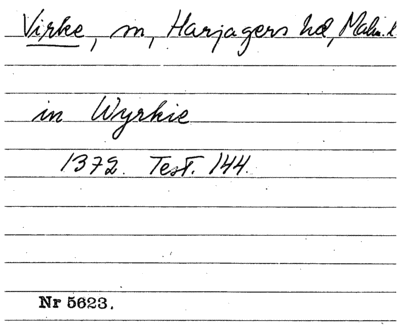 Virke, m, Harjagers hd, Malm. l
in Wyrkie
1372. Test. 144.
Nr 5623.